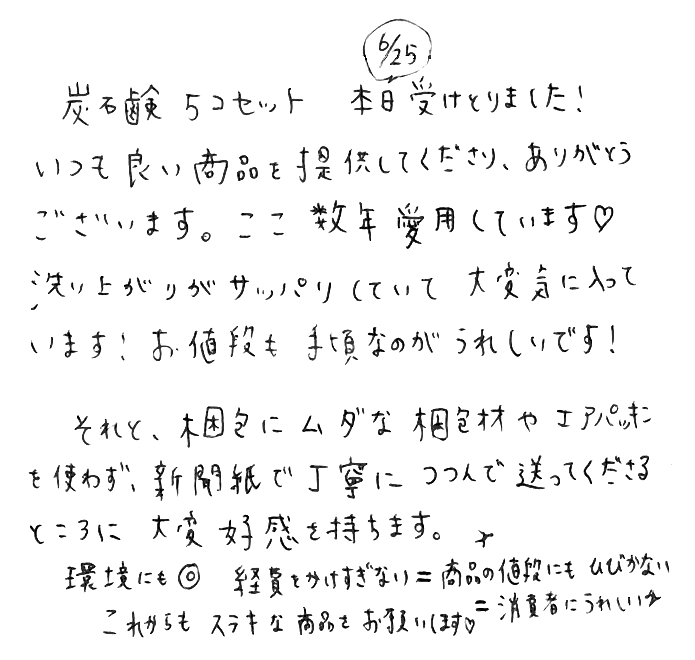 6/25
炭石鹸 5コセット 本日受けとりました!
いつも良い商品を提供してくださり、ありがとう
ございます。ここ数年愛用しています♡
洗い上がりがサッパリしていて大変気に入って
います!お値段も手頃なのがうれしいです!
それと、梱包にムダな梱包材やエアパッキン
を使わず、新聞紙で丁寧につつんで送ってくださる
ところに大変好感を持ちます。
環境にも◎ 経費をかけすぎない=商品の値段にもひびかない
=消費者にうれしい
これからもステキな商品をお願いします♡